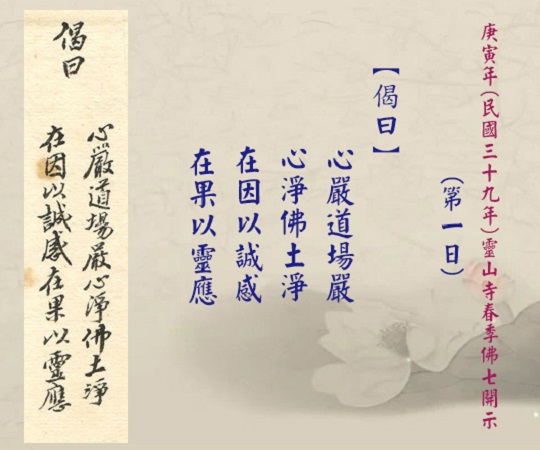 庚寅年(民國三十九年)靈山寺春季佛七開示
(第一日)
【偈曰】
心嚴道場嚴
心淨佛土淨
在因以誠感
在果以靈應
偈曰
心嚴道場嚴心淨佛土淨
在因以誠感在果以靈應